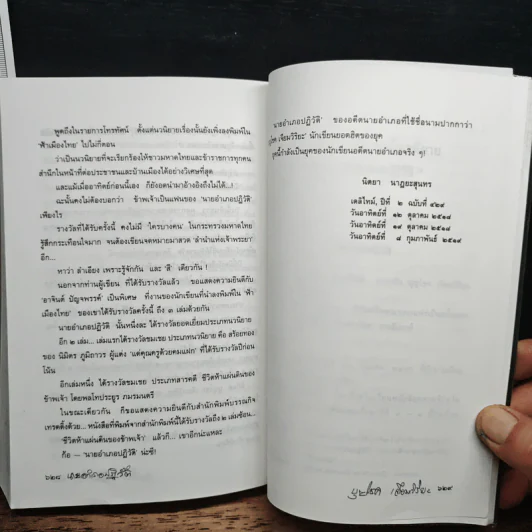 พูดถึงในรายการโทรทัศน์ ตั้งแต่นวนิยายเรื่องนั้นยังเพิ่งลงพิมพ์ใน
'ฟ้าเมืองไทย' ไปไม่กี่ตอน
ว่าเป็นนวนิยายที่จะเรียกร้องให้ชาวมหาดไทยและข้าราชการทุกคน
สำนึกในหน้าที่ต่อประชาชนและบ้านเมืองได้อย่างวิเศษที่สุด
และแม้เมื่ออาทิตย์ก่อนนี้เอง ก็ยังอดนำมาอ้างอิงถึงไม่ได้...!
ฉะนั้นคงไม่ต้องบอกว่า ข้าพเจ้าเป็นแฟนของ 'นายอำเภอปฏิวัติ'
เพียงไร
รางวัลที่ได้รับครั้งนี้ คงไม่มี 'ใครบางคน' ในกระทรวงมหาดไทย
รู้สึกกระเทือนใจมาก จนต้องเขียนจดหมายมาสวด 'ลำนำแห่งเจ้าพระยา'
อีก...
หาว่า ลำเอียง เพราะรู้จักกัน และ 'สี' เดียวกัน !
นอกจากท่านผู้เขียน ที่ได้รับรางวัลแล้ว ขอแสดงความยินดีกับ
'อาจินต์ ปัญจพรรค์' เป็นพิเศษ ที่งานของนักเขียนที่นำลงพิมพ์ใน 'ฟ้า
เมืองไทย' ของเขาได้รับรางวัลครั้งนี้ ถึง ๓ เล่มด้วยกัน
'นายอำเภอปฏิวัติ' นั้นหนึ่งละ ได้รางวัลยอดเยี่ยมประเภทนวนิยาย
อีก ๒ เล่ม... เล่มแรกได้รางวัลชมเชย ประเภทนวนิยาย คือ สร้อยทอง
ของ นิมิตร ภูมิถาวร ผู้แต่ง 'แด่คุณครูด้วยคมแฝก' ที่ได้รับรางวัลปีก่อน
โน้น
อีกเล่มหนึ่ง ได้รางวัลชมเชย ประเภทสารคดี 'ชีวิตฟ้าแผ่นดินของ
ข้าพเจ้า' โดยพลโทประยูร ภมรมนตรี
ในขณะเดียวกัน ก็ขอแสดงความยินดีกับสำนักพิมพ์บรรณกิจ
เทรดดิ้งด้วย... หนังสือที่พิมพ์จากสำนักพิมพ์นี้ได้รับรางวัลถึง ๒ เล่มซ้อน...
'ชีวิตฟ้าแผ่นดินของข้าพเจ้า' แล้วก็... เขาอีกน่ะแหละ
ก้อ — 'นายอำเภอปฏิวัติ' น่ะซี!
๖๒๘ นายอำเภอปฏิวัติ
นายอำเภอปฏิวัติ' ของอดีตนายอำเภอที่ใช้ชื่อนามปากกาว่า
โชค เจียมวิริยะ' นักเขียนยอดฮิตของยุค
ยุคนี้กำลังเป็นยุคของนักเขียนอดีตนายอำเภอจริง ๆ!
นิตยา นาฏยะสุนทร
เดลิไทม์, ปีที่ ๒ ฉบับที่ ๔๒๙
วันอาทิตย์ที่ ๑๒ ตุลาคม ๒๕๑๘
วันอาทิตย์ที่ ๑๙ ตุลาคม ๒๕๑๘
วันอาทิตย์ที่ ๘ กุมภาพันธ์ ๒๕๑๙
๖๒๙